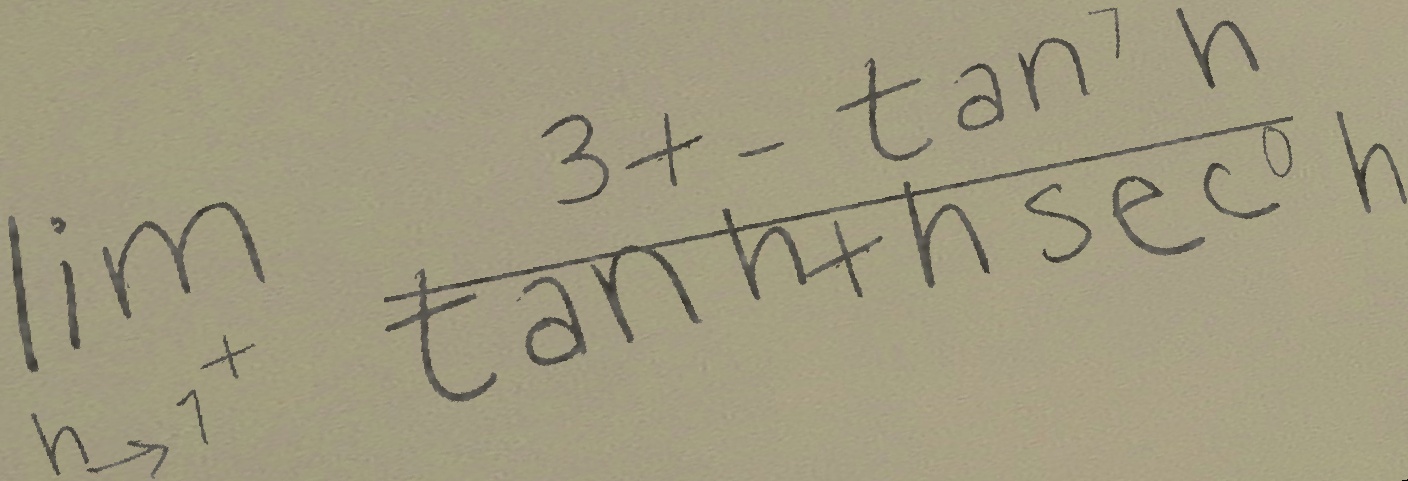 \lim_{h \to 1^+} \frac{3 + - \tan^1 h}{\tan h + h \sec^0 h}